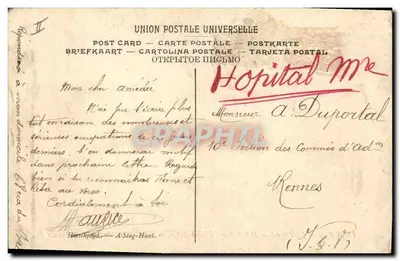 UNION POSTALE UNIVERSELLE
POST CARD — CARTE POSTALE — POSTKARTE
BRIEFKAART — CARTOLINA POSTALE — TARJETA POSTAL
ОТКРЫТОЕ ПИСЬМО
II
Hopital Mre
Mon cher Amédée
N'ai pu t'écrire plus
tôt en raison des nombreuses et
sérieuses occupations
derniers. T'en donnerai
dans prochaine lettre. Regarde
bien si tu reconnaîtras
au verso.
Cordialement à toi
Maurice
A-Sing-Hunt.
Monsieur A. Duportal
10e Section des Commis d'Adon
Rennes
(I.&V)
à mon domicile 68 rue
CARTHAGE